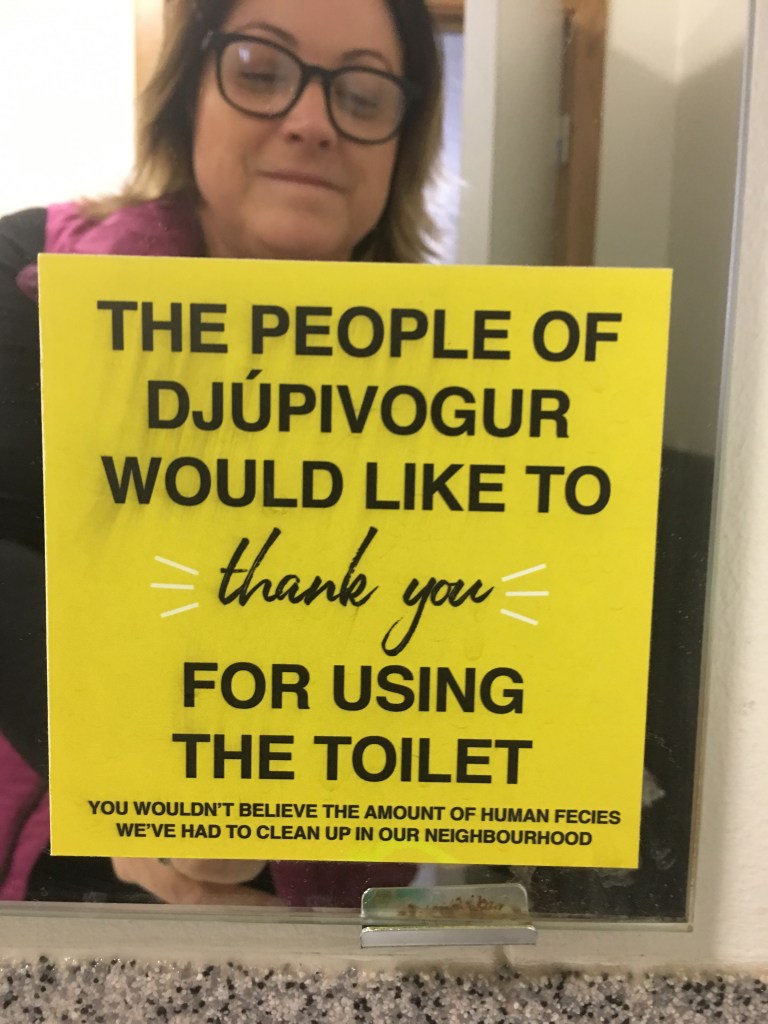 THE PEOPLE OF
DJÚPIVOGUR
WOULD LIKE TO
thank you
FOR USING
THE TOILET
YOU WOULDN'T BELIEVE THE AMOUNT OF HUMAN FECIES
WE'VE HAD TO CLEAN UP IN OUR NEIGHBOURHOOD